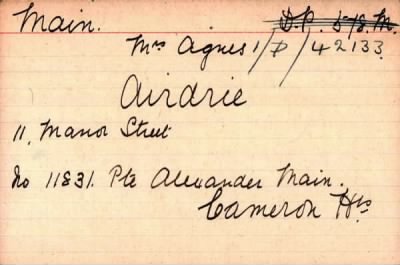 Main. D.P. 5/8. M.
Mrs Agnes 1/D/42133
Airdrie
11, Manor Street
No 11831. Pte Alexander Main.
Cameron Hrs.